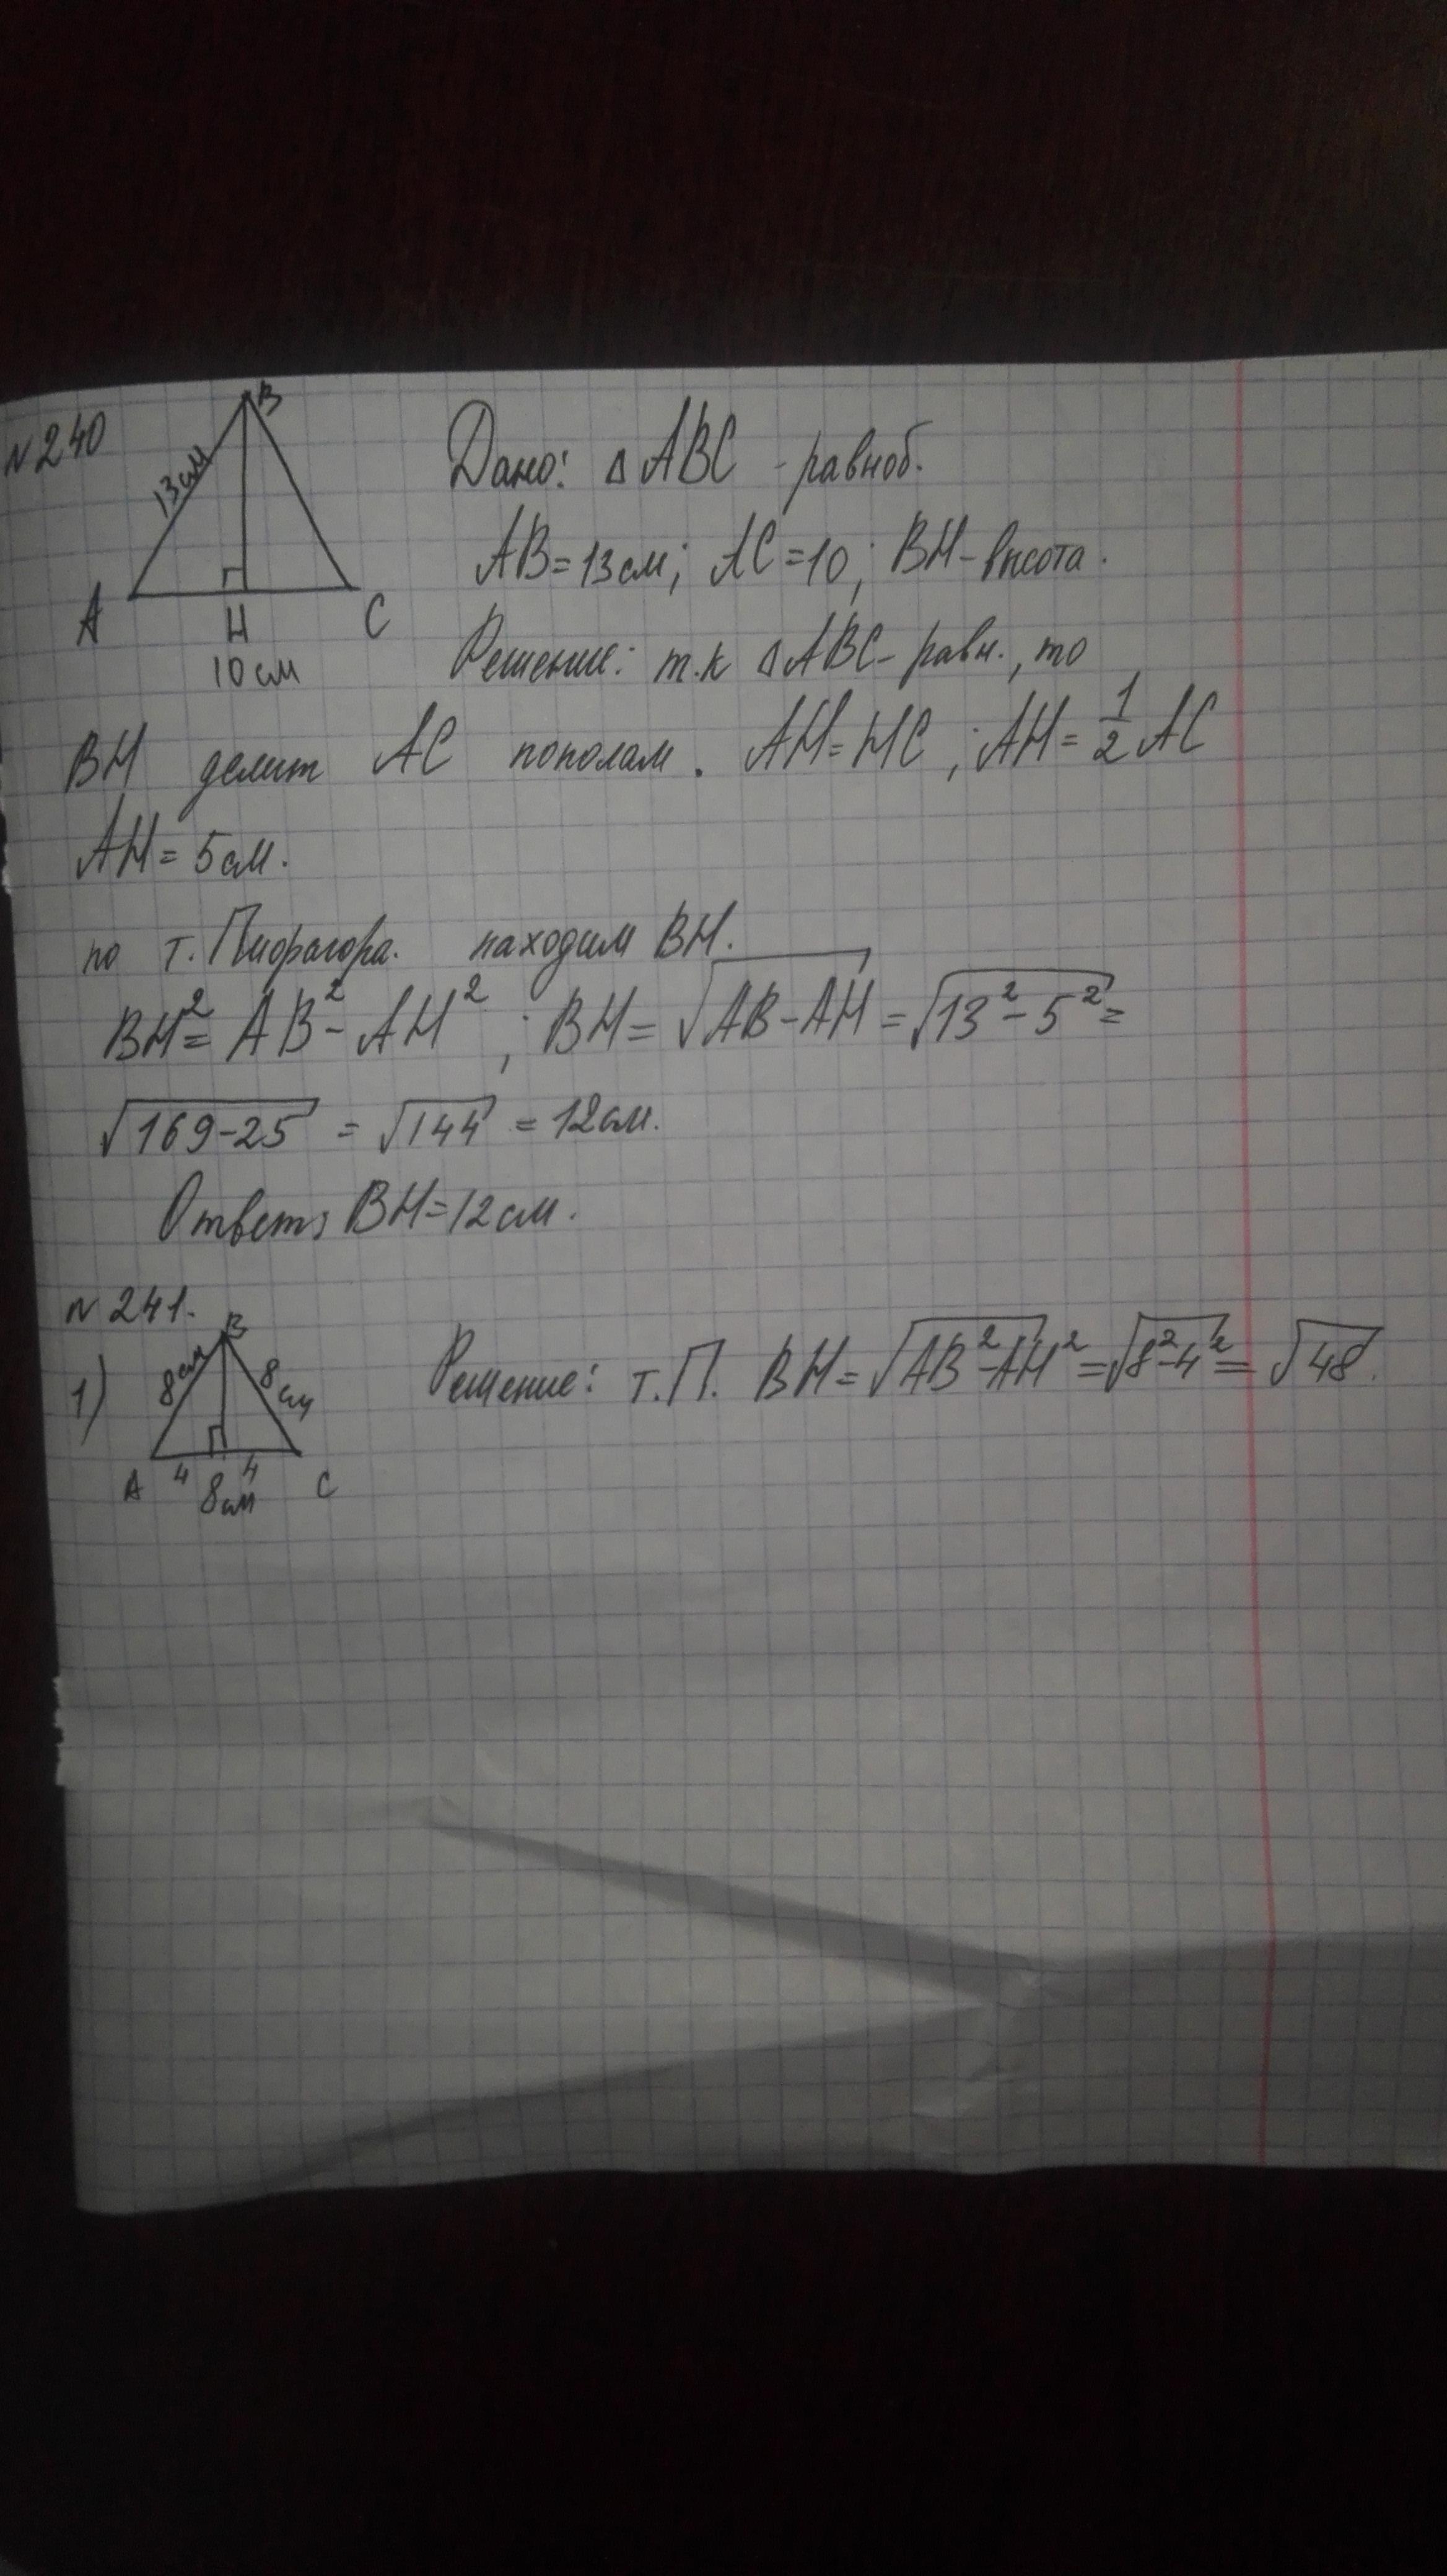 N 240
B
13см
A
H
C
10 см
Дано: △ABC - равноб.
AB = 13 см; AC = 10; BH - высота.
Решение: т.к △ABC - равн., то
BH делит AC пополам. AH = HC; AH = 1/2 AC
AH = 5 см.
по т. Пифагора. находим BH.
BH² = AB² - AH²; BH = √(AB - AH) = √(13² - 5²) =
√(169-25) = √144 = 12 см.
Ответ: BH = 12 см.
N 241.
1)
B
8 см
8 см
4
4
A
8 см
C
Решение: т.П. BH = √(AB² - AH²) = √(8² - 4²) = √48.